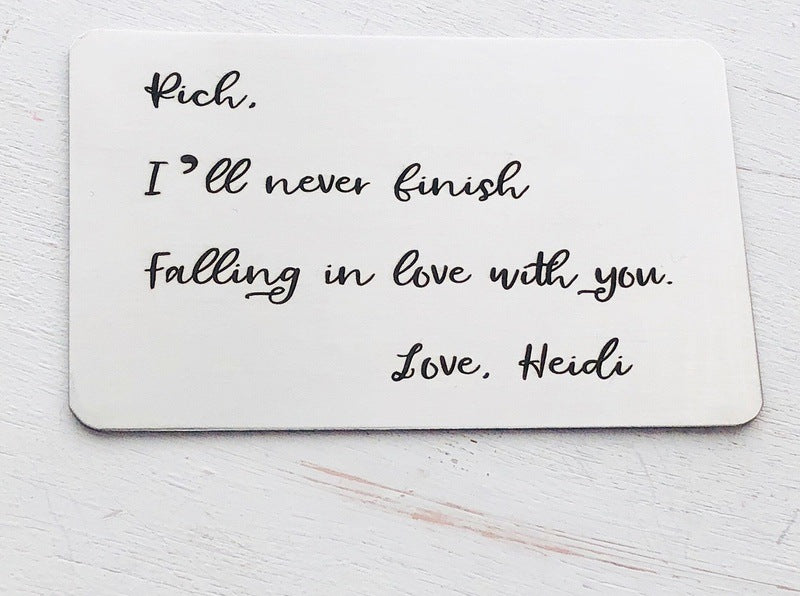 Rich,
I'll never finish
Falling in love with you.
Love, Heidi